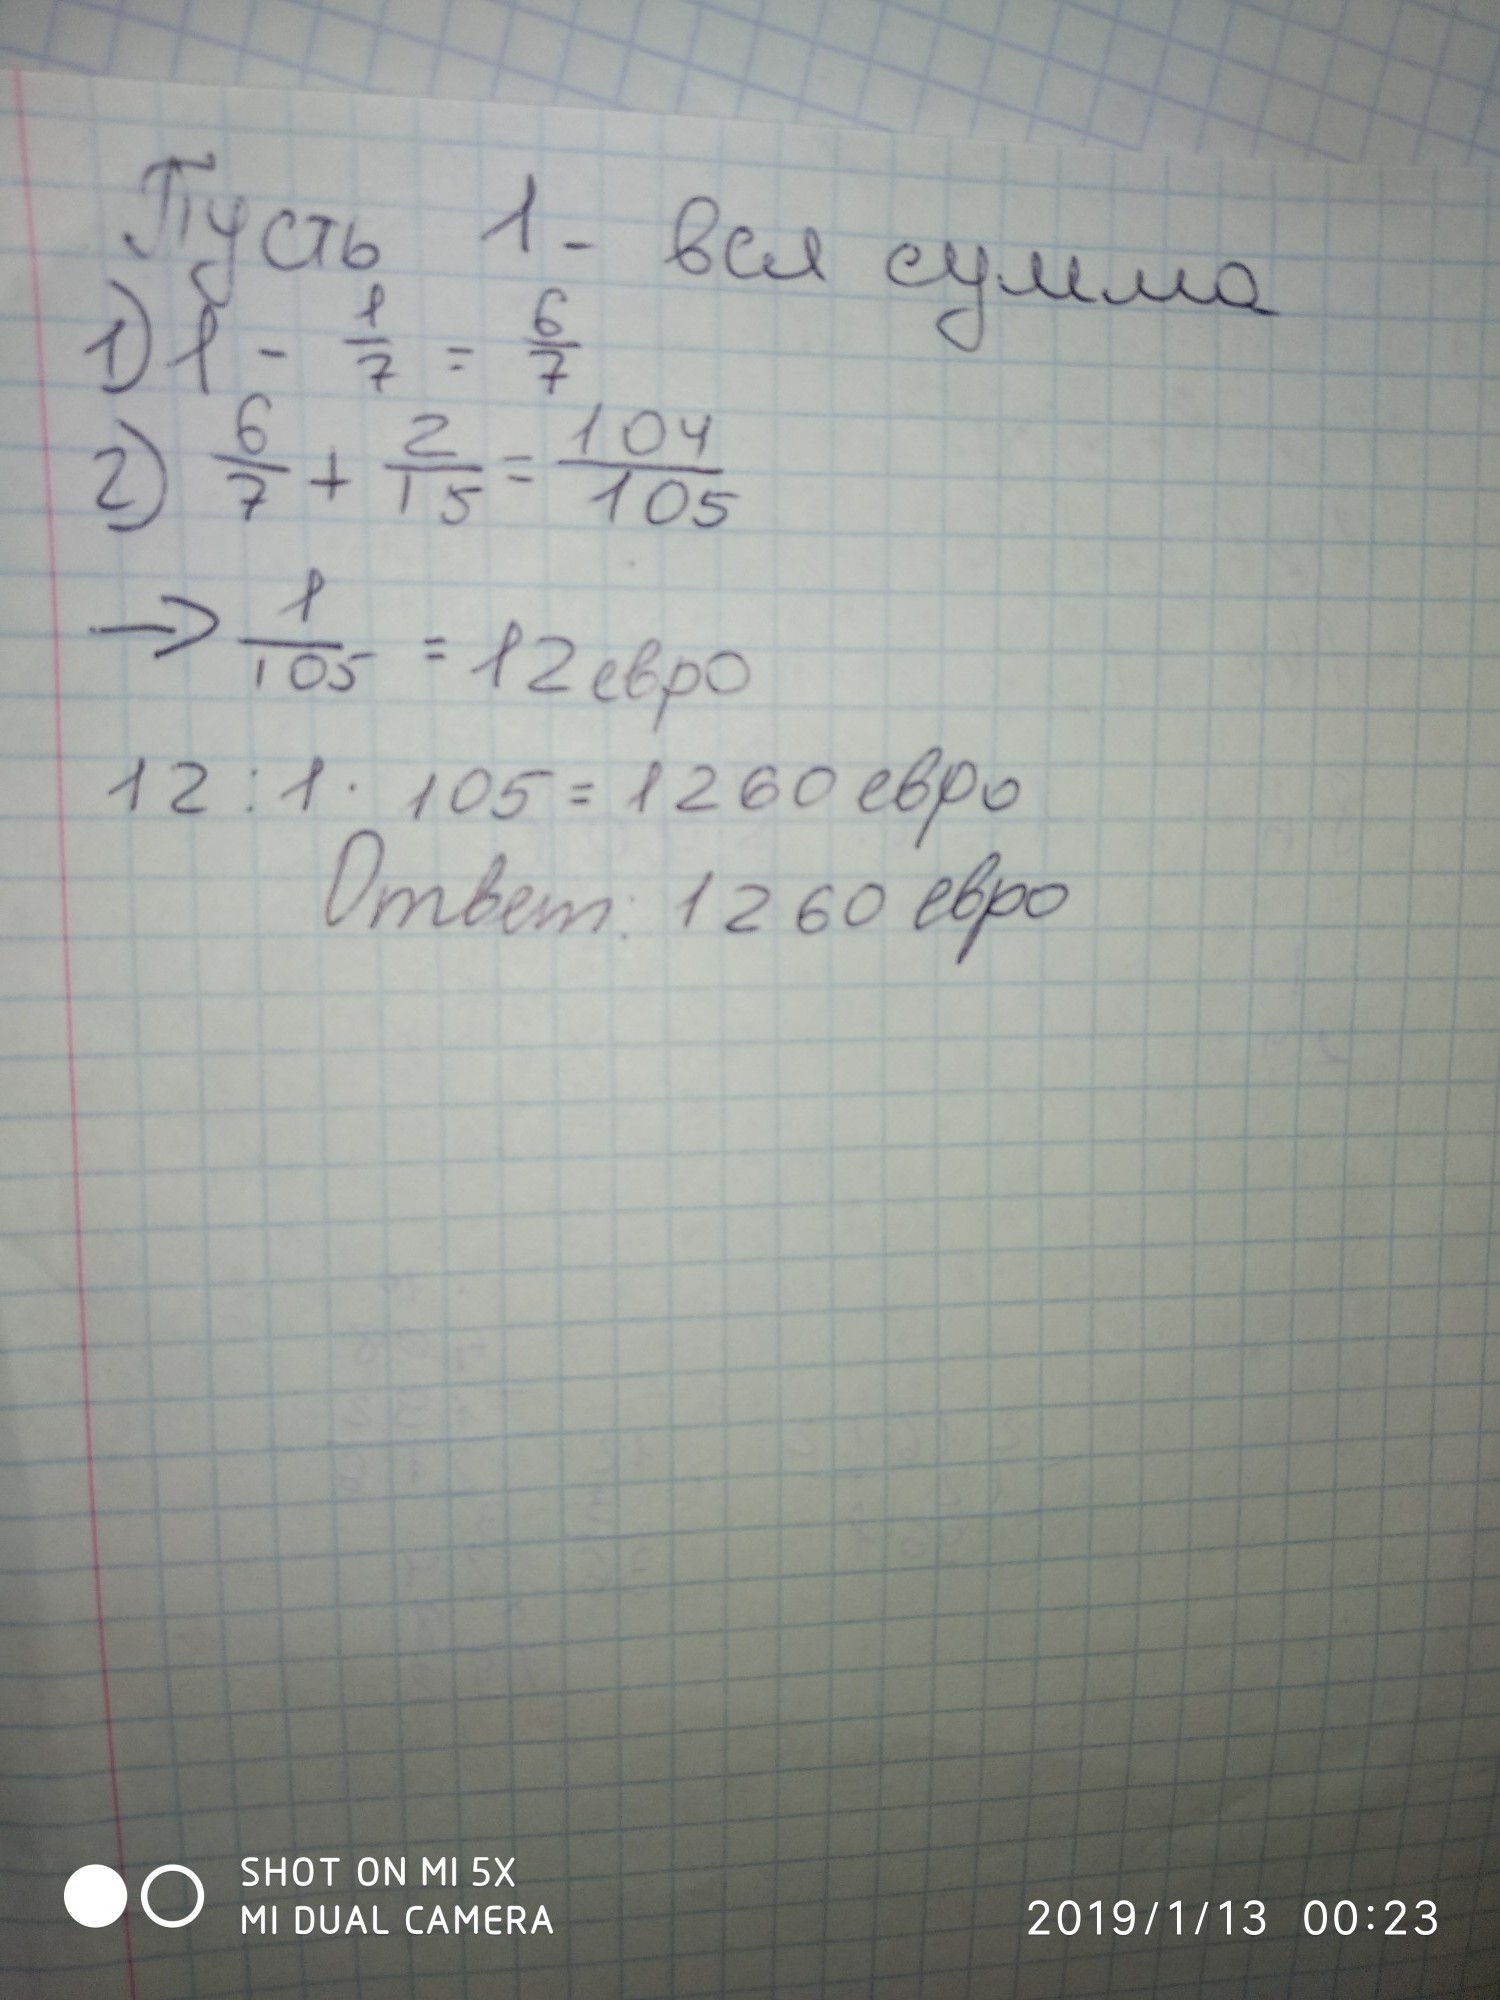 Пусть 1 - вся сумма
1) 1 - 1/7 = 6/7
2) 6/7 + 2/15 = 104/105
→ 1/105 = 12 евро
12 : 1 · 105 = 1260 евро
Ответ: 1260 евро
SHOT ON MI 5X
MI DUAL CAMERA
2019/1/13 00:23